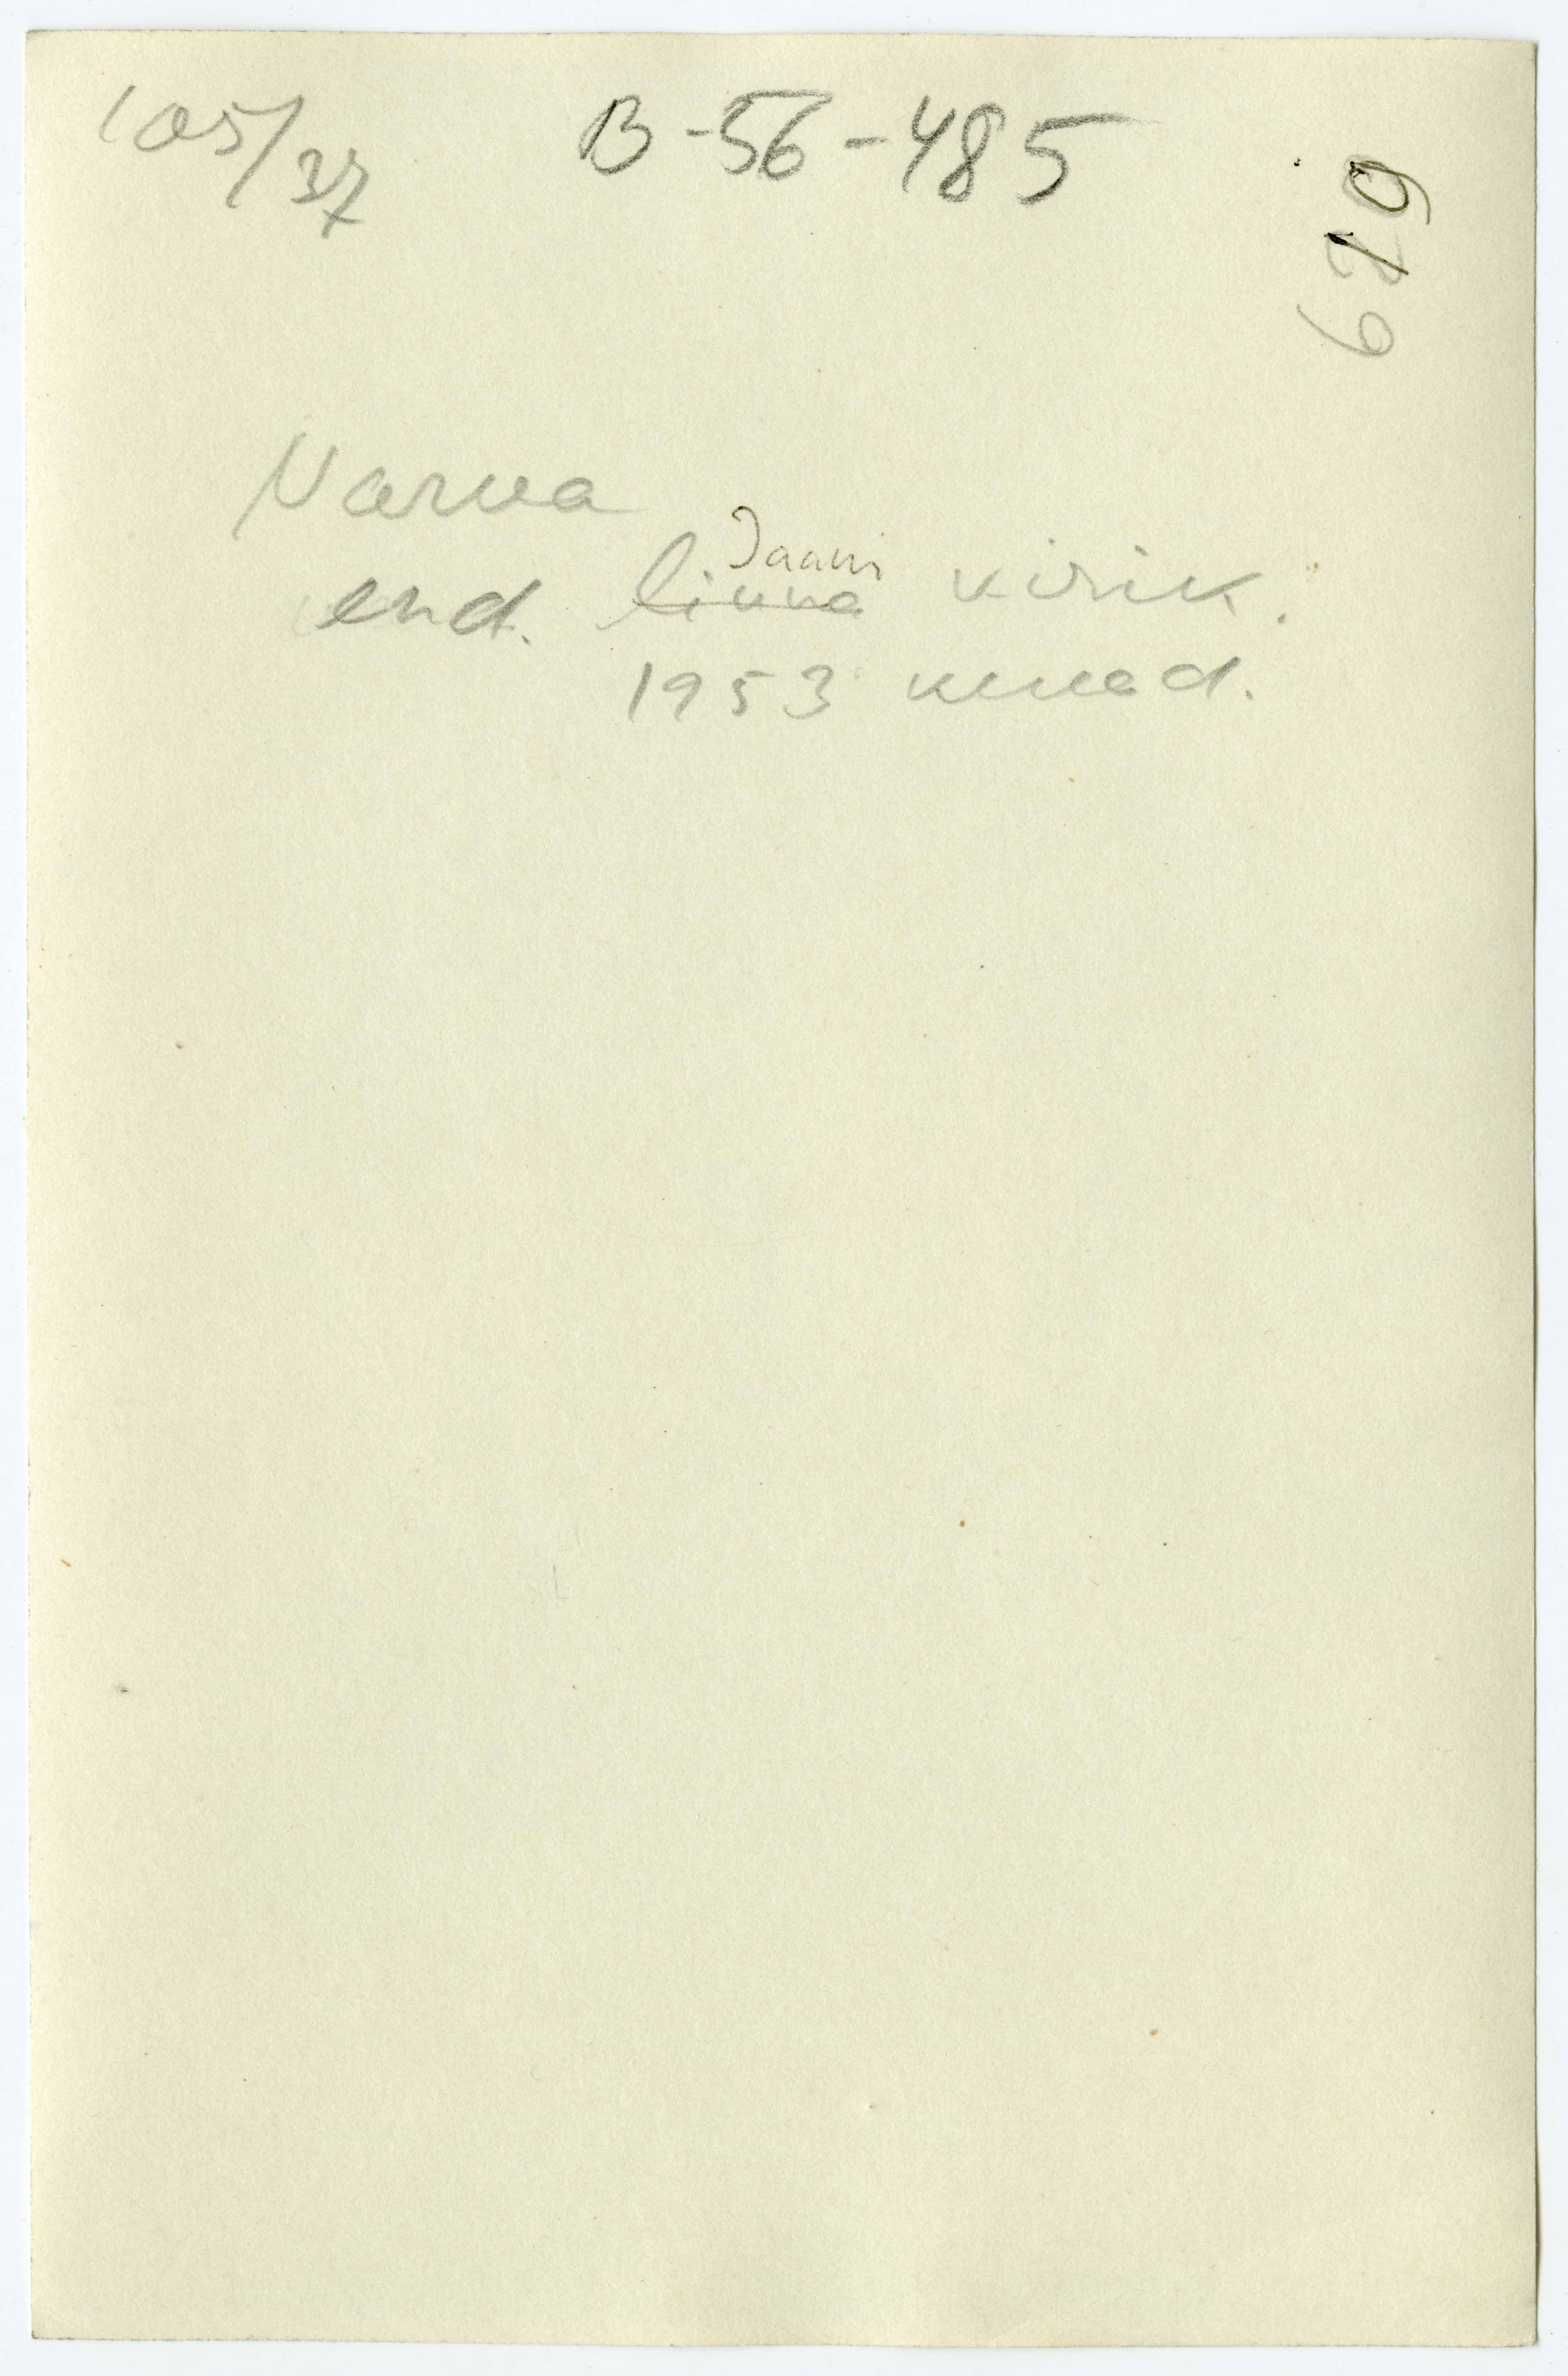 105/37 B-56-485
Narva
Jaani
end. linna kirik.
1953 kevad.